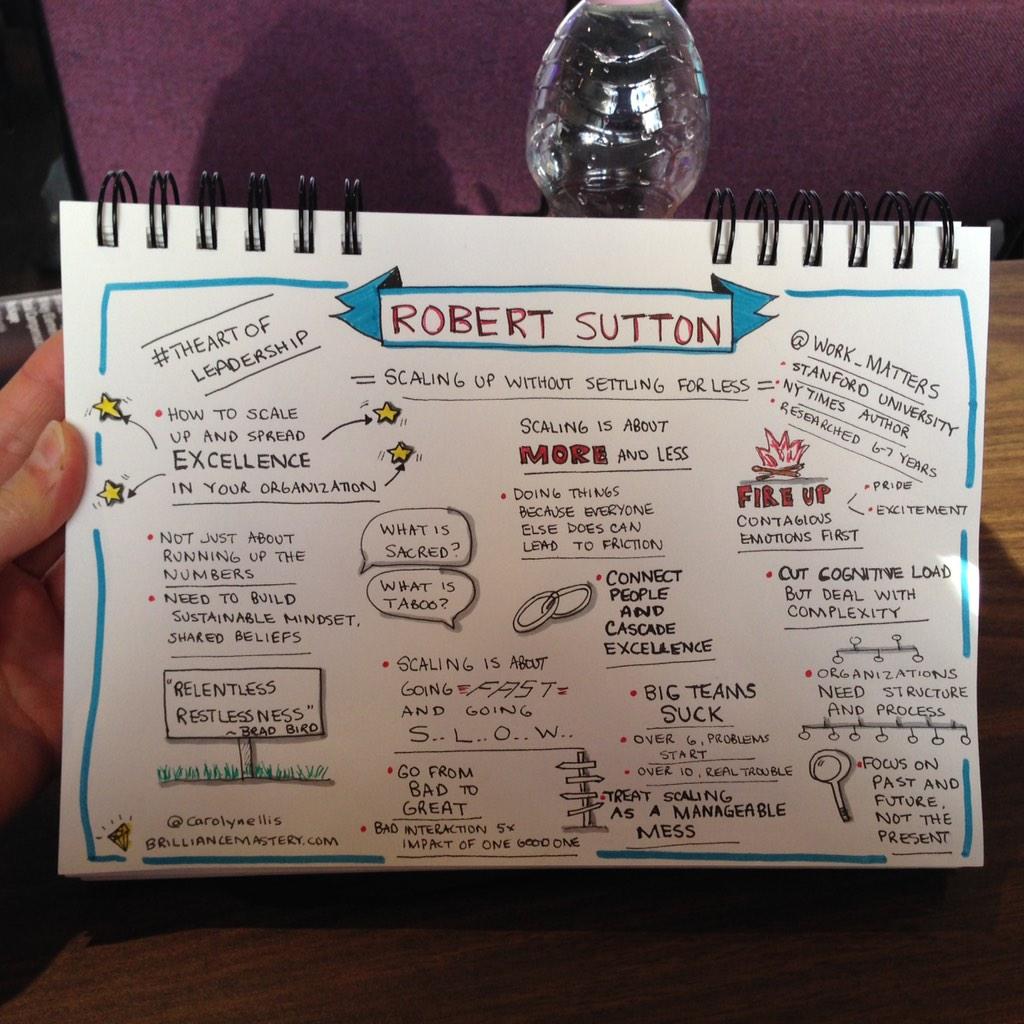 ROBERT SUTTON
#THEART OF
LEADERSHIP
= SCALING UP WITHOUT SETTLING FOR LESS =
@WORK_MATTERS
• STANFORD UNIVERSITY
• NY TIMES AUTHOR
• RESEARCHED 6-7 YEARS
• HOW TO SCALE
UP AND SPREAD
EXCELLENCE
IN YOUR ORGANIZATION
SCALING IS ABOUT
MORE AND LESS
FIRE UP
CONTAGIOUS
EMOTIONS FIRST
• PRIDE
• EXCITEMENT
• DOING THINGS
BECAUSE EVERYONE
ELSE DOES CAN
LEAD TO FRICTION
• NOT JUST ABOUT
RUNNING UP THE
NUMBERS
• NEED TO BUILD
SUSTAINABLE MINDSET,
SHARED BELIEFS
WHAT IS
SACRED?
WHAT IS
TABOO?
• CONNECT
PEOPLE
AND
CASCADE
EXCELLENCE
• CUT COGNITIVE LOAD
BUT DEAL WITH
COMPLEXITY
• ORGANIZATIONS
NEED STRUCTURE
AND PROCESS
"RELENTLESS
RESTLESSNESS"
~ BRAD BIRD
• SCALING IS ABOUT
GOING =FAST=
AND GOING
S.. L.. O.. W..
• BIG TEAMS
SUCK
• OVER 6, PROBLEMS
START
• OVER 10, REAL TROUBLE
• GO FROM
BAD TO
GREAT
• BAD INTERACTION 5x
IMPACT OF ONE GOOD ONE
• TREAT SCALING
AS A MANAGEABLE
MESS
• FOCUS ON
PAST AND
FUTURE,
NOT THE
PRESENT
@carolynellis
BRILLIANCEMASTERY.COM